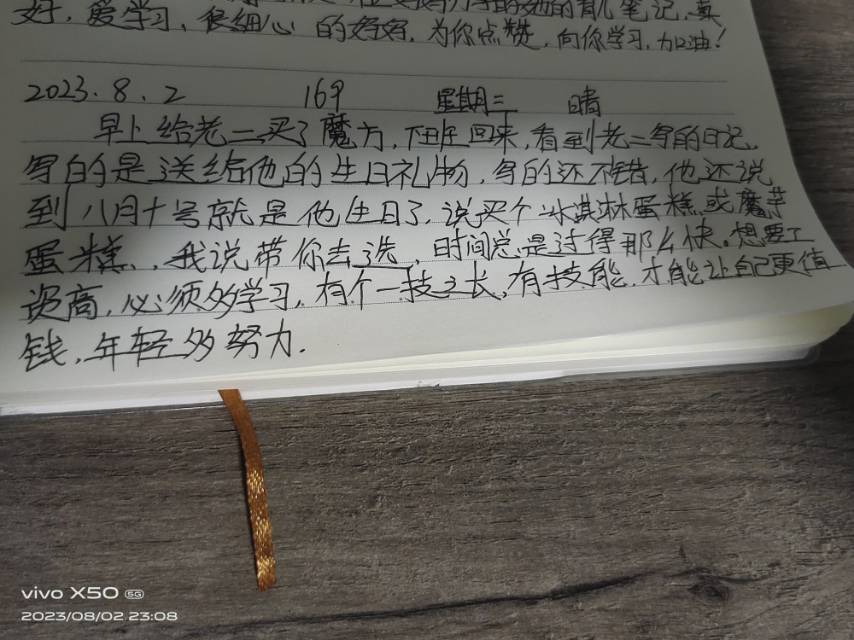 好，爱学习，很细心的妈妈，为你点赞，向你学习，加油！
2023.8.2 169 星期三 晴
早上给老二买了魔方，下班回来，看到老二写的日记，
写的是送给他的生日礼物，写的还不错，他还说
到八月十号就是他生日了，说买个冰淇淋蛋糕或魔芋
蛋糕，我说带你去选，时间总是过得那么快。想要工
资高，必须多学习，有个一技之长，有技能，才能让自己更值
钱，年轻多努力.
vivo X50 5G
2023/08/02 23:08